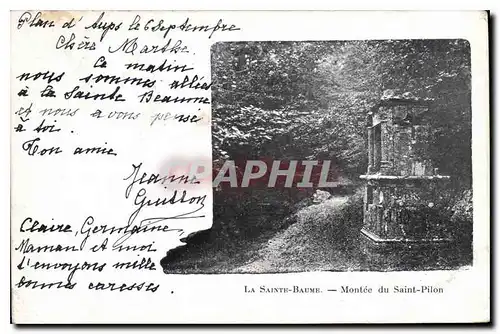 Plan d'Aups le 6 Septembre
Chère Marthe
Ce matin
nous sommes allées
à la Sainte Beaume
et nous avons pensé
à toi.
Ton amie
Jeanne
Guitton
Claire, Germaine
Maman et moi
t'envoyons mille
bonnes caresses.
CAPHIL
La Sainte-Baume. — Montée du Saint-Pilon